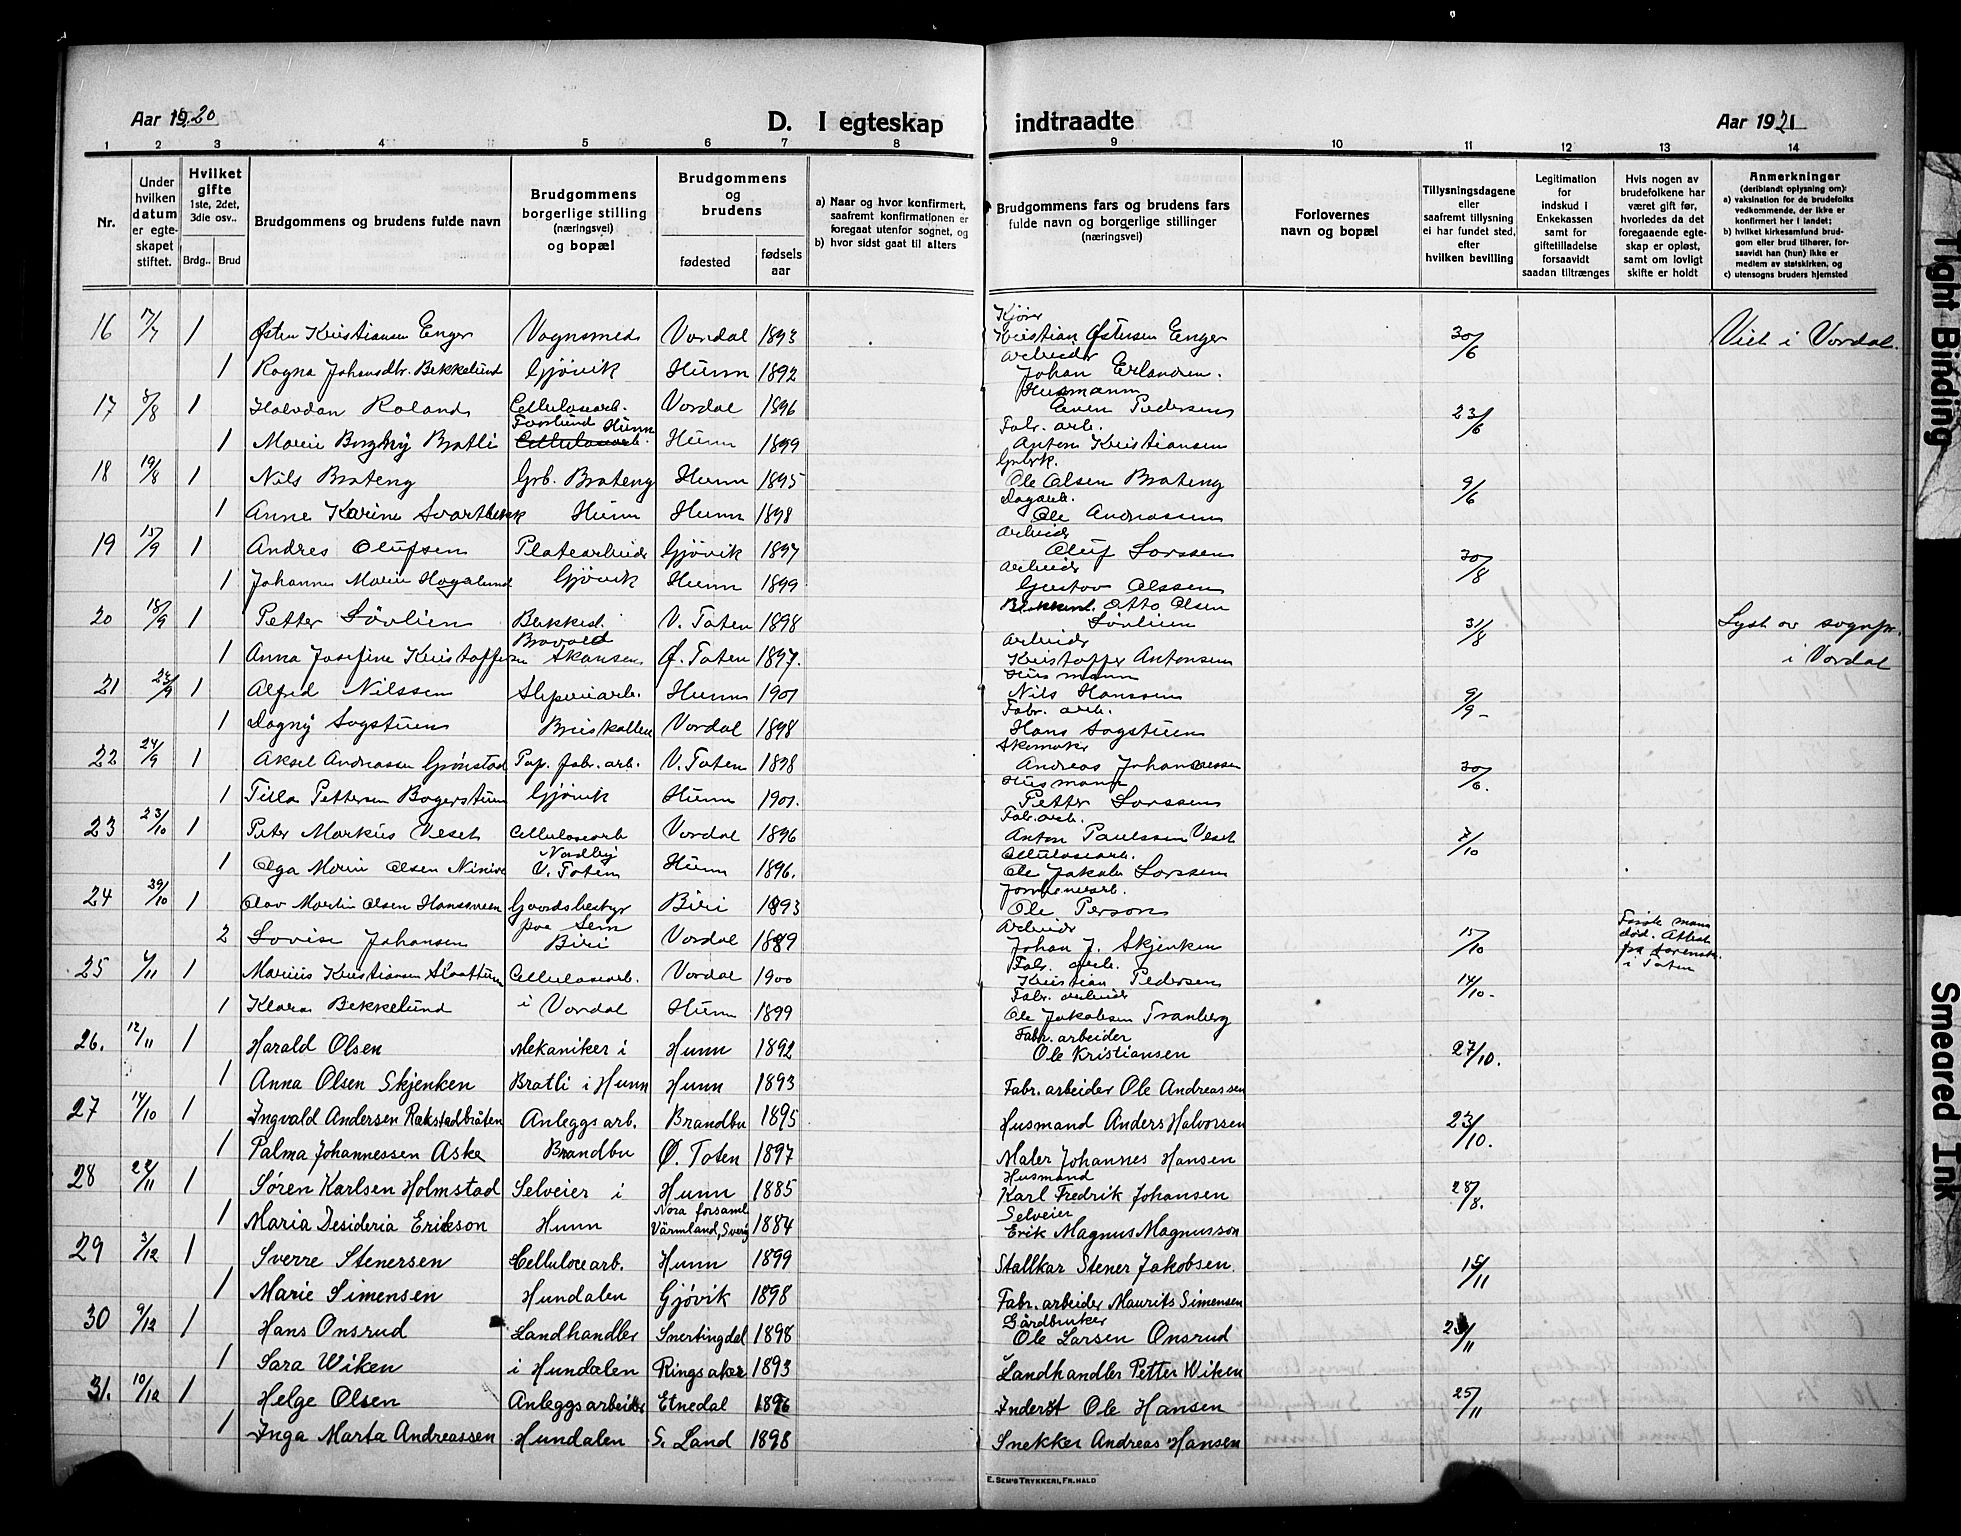 Aar 1920
D. I egteskap indtraadte
Aar 1921
1 2 3 4 5 6 7 8 9 10 11 12 13 14
Nr.
Under hvilken datum er egteskapet stiftet.
Hvilket gifte 1ste, 2det, 3die osv..
Brdg.. Brud
Brudgommens og brudens fulde navn
Brudgommens borgerlige stilling (næringsvei) og bopæl
Brudgommens og brudens
fødested
fødselsaar
a) Naar og hvor konfirmert, saafremt konfirmationen er foregaat utenfor sognet, og
b) hvor sidst gaat til alters
Brudgommens fars og brudens fars fulde navn og borgerlige stillinger (næringsvei)
Forlovernes navn og bopæl
Tillysningsdagene eller saafremt tillysning ei har fundet sted, efter hvilken bevilling
Legitimation for indskud i Enkekassen samt for giftetilladelse forsaavidt saadan tiltrænges
Hvis nogen av brudefolkene har været gift før, hvorledes da det foregaaende egteskap er opløst, samt om lovligt skifte er holdt
Anmerkninger
(deriblandt oplysning om):
a) vaksination for de brudefolks vedkommende, der ikke er konfirmert her i landet;
b) hvilket kirkesamfund brudgom eller brud tilhører, forsaavidt han (hun) ikke er medlem av statskirken, og
c) utensogns bruders hjemsted
16 7/7 1 Østen Kristiansen Enger Vognsmed Vordal 1893 Kjører Kristian Østensen Enger 30/6 Viet i Vordal.
1 Ragna Johansdtr. Bekkelund Gjøvik Hunn 1892 Arbeider Johan Erlandsen.
17 8/8 1 Halvdan Roland Cellulosearb. Vordal 1896 Husmann Even Pedersen 23/6
1 Marie Borghy Bratli Hunn Cellulosearb. Hunn 1899 Fabr. arb. Anton Kristiansen
18 19/8 1 Nils Brateng Grb. Brateng Hunn 1895 Ole Olsen Brateng 9/6
1 Anne Karine Svartbekk Hunn Hunn 1898 Dagarb. Ole Andreassen
19 15/9 1 Andres Olufsen Platearbeider Gjøvik 1897 Arbeider Oluf Larssen 30/8
1 Johanne Marie Hagalund Gjøvik Hunn 1899 Arbeider Gustav Olssen
20 18/9 1 Petter Løvlien V. Toten 1898 Otto Olsen Løvlien 31/8 Lyst av sognepr.
1 Anna Josefine Kristoffersen Bravold Skansen Ø. Toten 1897. Arbeider Kristoffer Antonsen i Vordal
21 24/9 1 Alfred Nilssen Sliperiarb. Hunn 1901 Husmann Nils Hanssen 9/9 -
1 Dagny Sogstuen Briskollen Vordal 1898 Fabr. arb. Hans Sogstuen
22 24/9 1 Aksel Andreassen Grønstad Pap. fabr. arb. V. Toten 1898 Skomaker Andreas Johannessen 30/6.
1 Tilla Pettersen Bagerstuen Gjøvik Hunn 1901. Husmann Petter Larssen
23 23/10 1 Peter Markus Veset Cellulosearb Vordal 1896 Fabr. arb. Anton Paulssen Veset 7/10
1 Olga Marie Olsen Ninive Nordby V. Toten Hunn 1896. Cellulosearb. Ole Jakob Larssen
24 29/10 1 Olav Martin Olsen Gaardsbestyr Biri 1893 Ole Person
2 Lovise Johansen paa Sem Biri Vordal 1889 Arbeider Johan J. Skjenken 15/10 Første mann død. Attest fra sorensk. i Toten
25 6/11 1 Marius Kristiansen Slaattum Cellulosearb. Vordal 1900 Fabr. arb. Kristian Pedersen 14/10.
1 Klara Bekkelund i Vordal Hunn 1899 Fabr. arbeider Ole Jakobsen Tranberg
26. 12/11 1 Harald Olsen Mekaniker i Hunn 1892 Fabr. arbeider Ole Kristiansen 27/10.
1 Anna Olsen Skjenken Bratli i Hunn Hunn 1893 Fabr. arbeider Ole Andreassen
27 14/10 1 Ingvald Andersen Rækstadbråten Anleggsarb. Brandbu 1895 Husmand Anders Halvorsen 23/10.
1 Palma Johannessen Aske Brandbu Ø. Toten 1897 Maler Johannes Hansen
28 22/11 1 Søren Karlsen Holmstad Selveier i Hunn 1885 Husmand Karl Fredrik Johansen 28/8.
1 Maria Desideria Erikson Hunn Nora forsaml. Värmland, Sverig 1884 Selveier Erik Magnus Magnusson
29 3/12 1 Sverre Stenersen Cellulosearb. Hunn 1899 Stallkar Stener Jakobsen. 15/11
1 Marie Simensen Hundalen Gjøvik 1898 Fabr. arbeider Maurits Simensen
30 9/12 1 Hans Onsrud Landhandler Snertingdal 1898 Gårdbruker Ole Larsen Onsrud 23/11
1 Sara Wiken i Hundalen Ringsaker 1893 Landhandler Petter Wiken
31. 10/12 1 Helge Olsen Anleggsarbeider Etnedal 1896 Inderst Ole Hansen 25/11
1 Inga Marta Andreassen Hundalen S. Land 1898 Snekker Andreas Hansen
E. SEM'S TRYKKERI, FR. HALD
Tight Binding
Smeared Ink